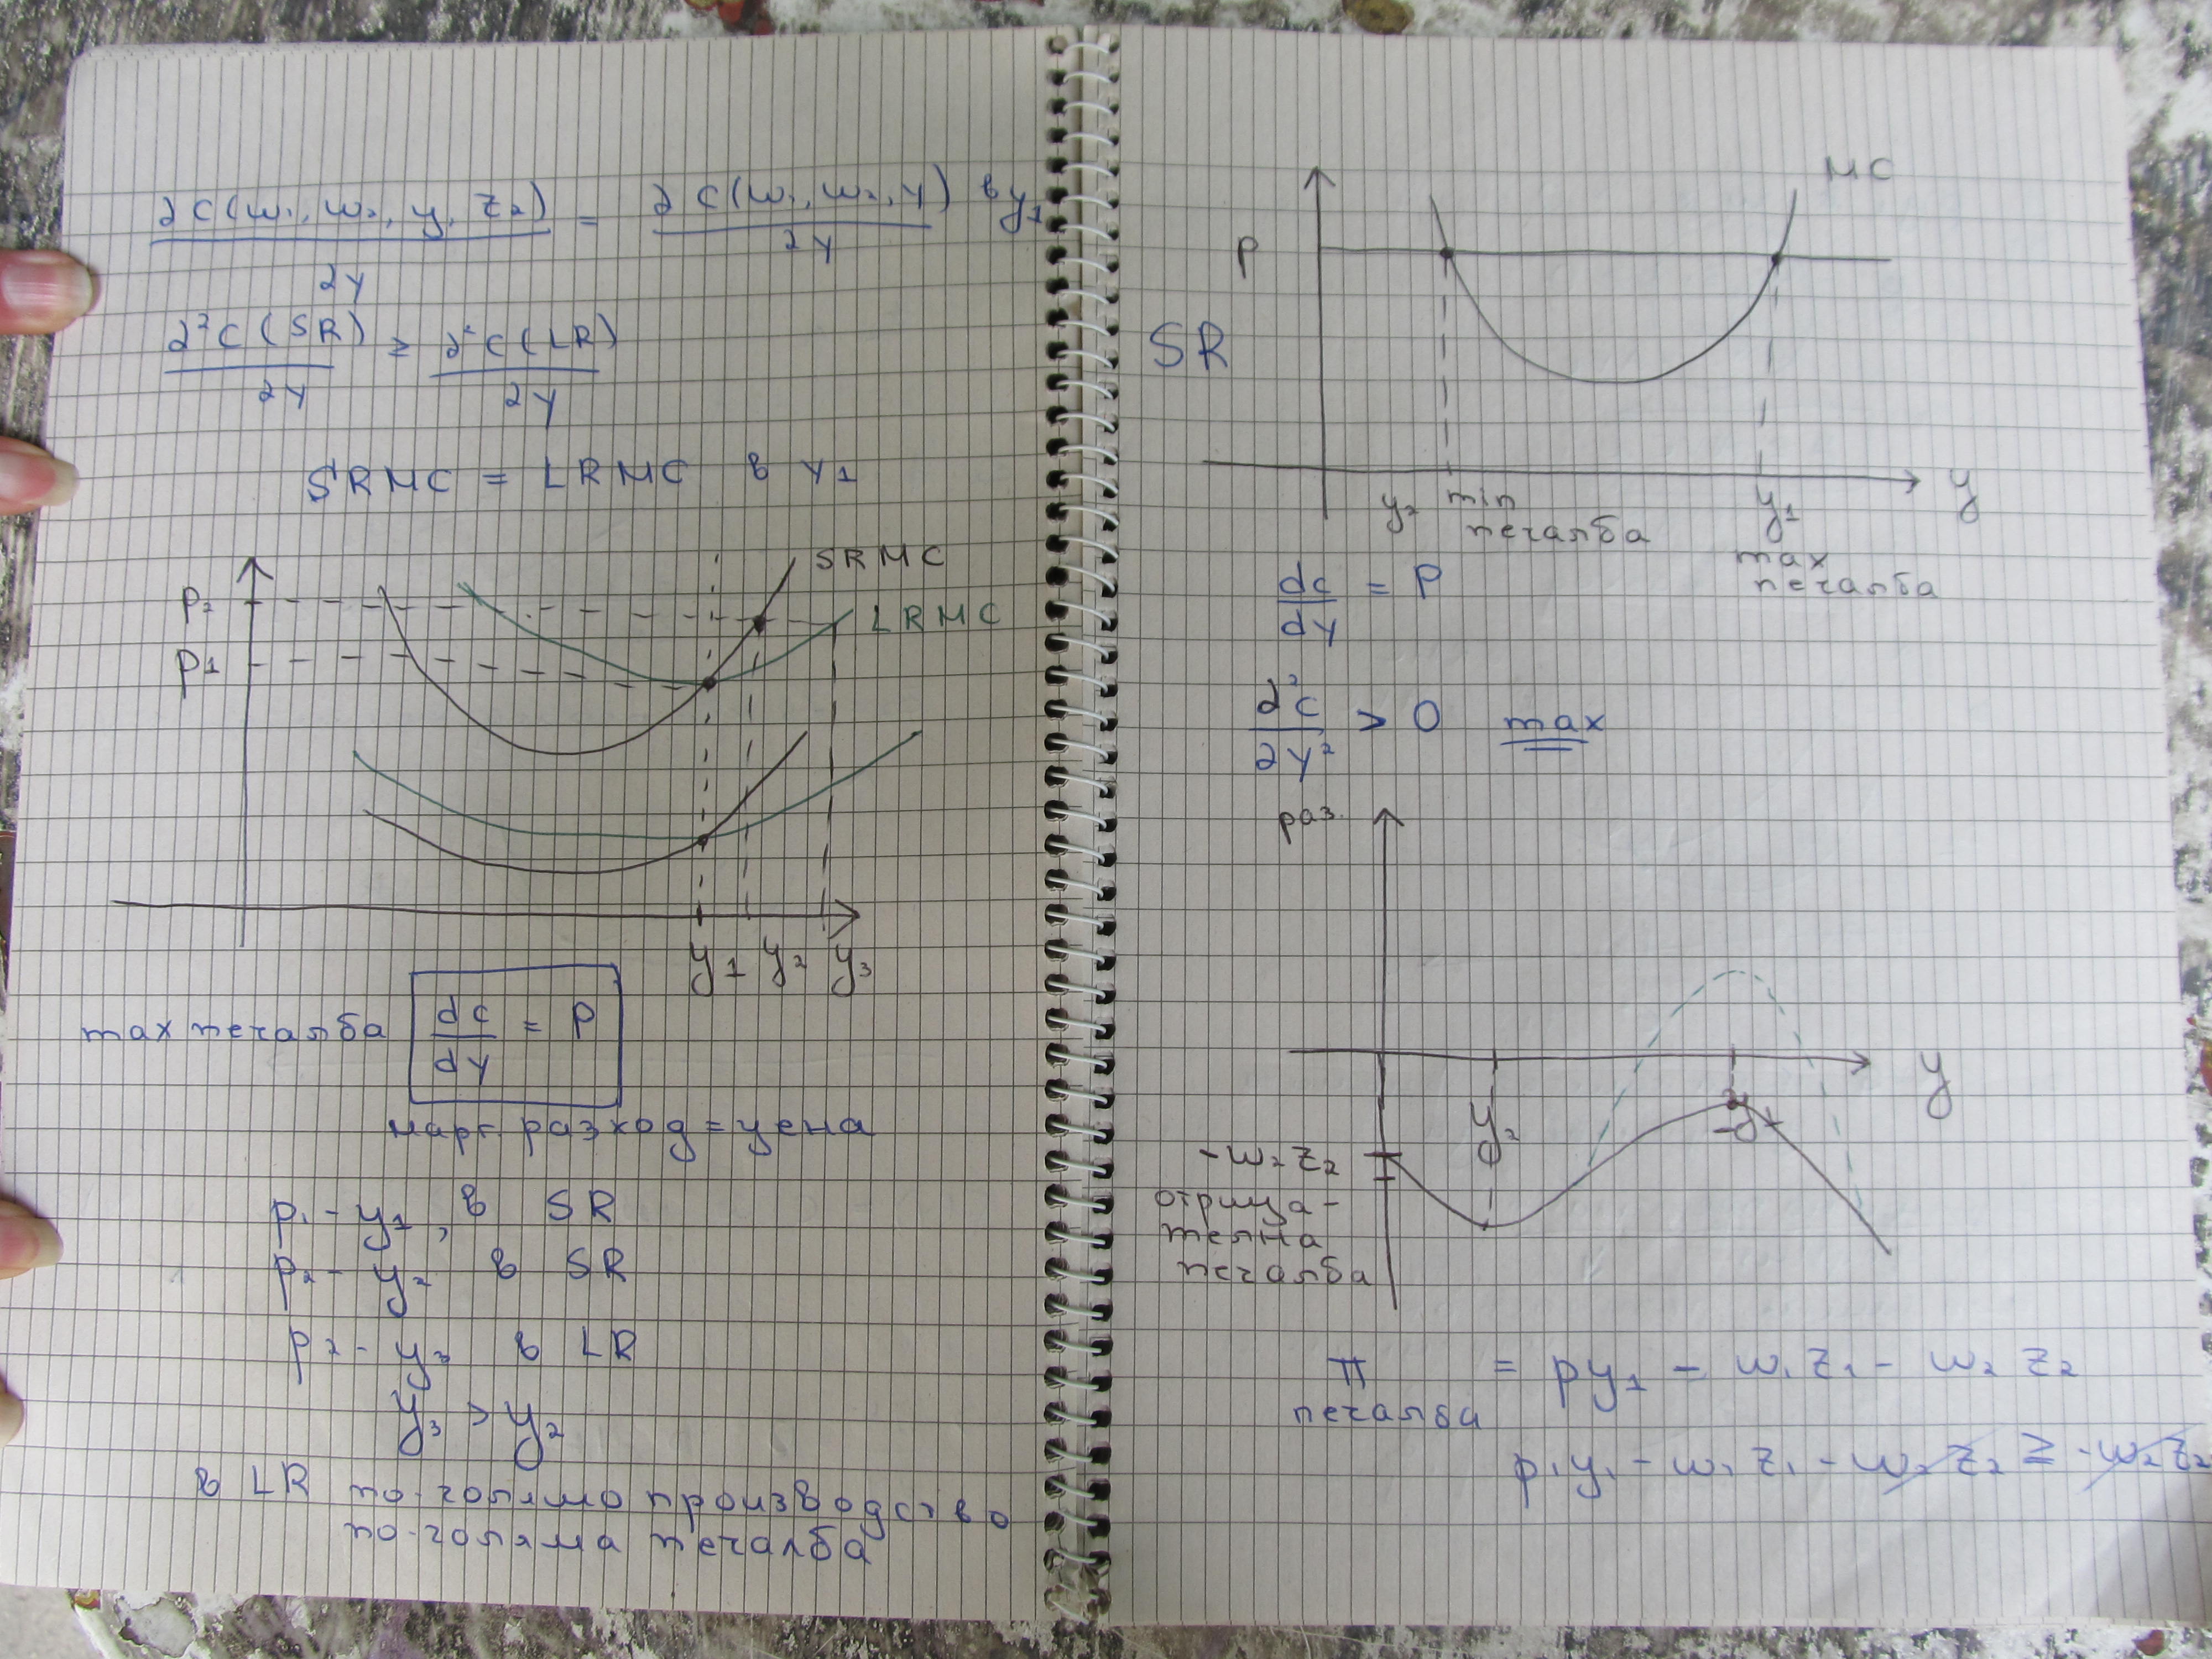 ∂C(w₁, w₂, y, z₂) / ∂y = ∂C(w₁, w₂, y) / ∂y в y₁
∂²C(SR) / ∂y ≥ ∂²C(LR) / ∂y
SRMC = LRMC в y₁
SRMC
P₂
LRMC
P₁
y₁ y₂ y₃
max печалба dc/dy = P
марг. разход = цена
p₁ - y₁, в SR
p₂ - y₂ в SR
p₂ - y₃ в LR
y₃ > y₂
в LR по-голямо производство
по-голяма печалба
MC
P
SR
y
y₂ min
печалба
y₁
max
печалба
dc/dy = P
∂²c/∂y² > 0 max
раз.
y
y₂
y₁
-w₂z₂
отрица-
телна
печалба
π = py₁ - w₁z₁ - w₂z₂
печалба
p₁y₁ - w₁z₁ - w₂z₂ ≥ -w₂z₂